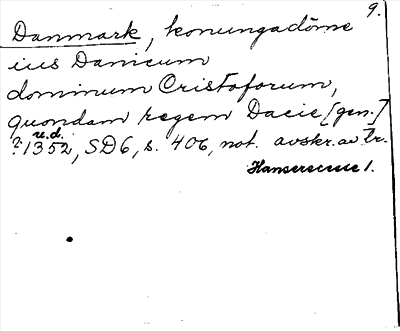 9.
Danmark, konungadöme
ius Danicum
dominum Cristoforum,
quondam regem Dacie [gen.]
u.d.
?1352, SD6, s. 406, not. avskr. av br.
Hanserecesse 1.